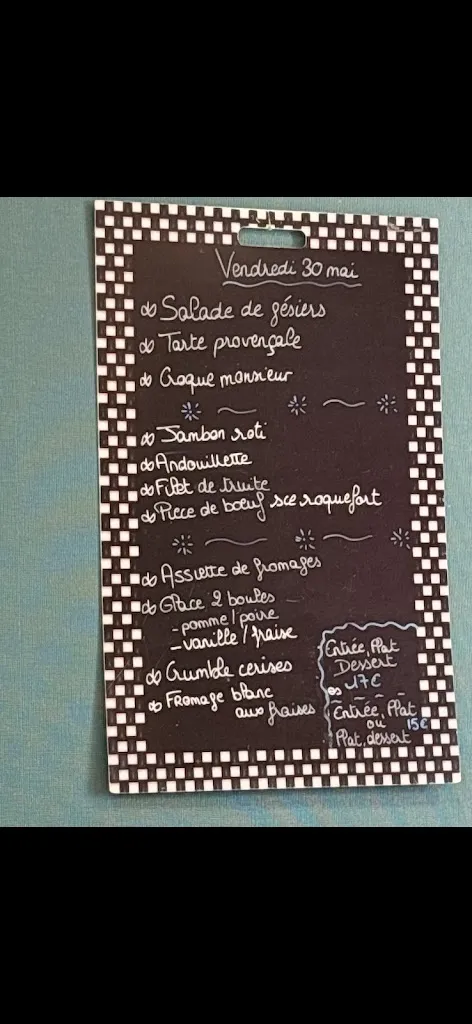 Vendredi 30 mai
Salade de gésiers
Tarte provençale
Croque monsieur
Jambon roti
Andouillette
Filet de truite
Piece de boeuf sce roquefort
Assiette de fromages
Glace 2 boules
- pomme / poire
- vanille / fraise
Crumble cerises
Fromage blanc
aux fraises
Entrée, Plat
Dessert
17€
Entrée, Plat
ou 15€
Plat, dessert